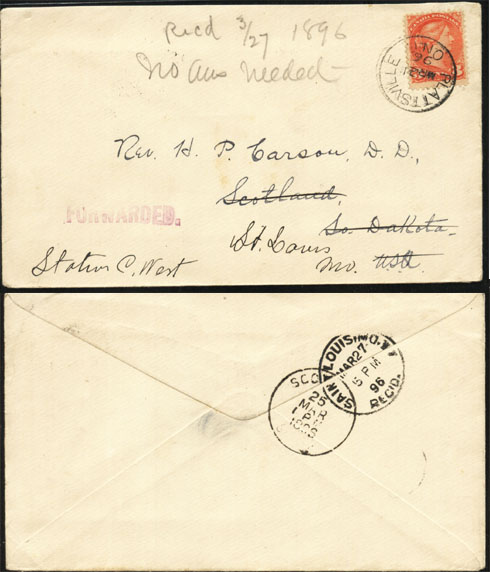 Recd 3/27 1896
No Ans Needed
PLATTSVILLE
MR 21
96
ONT
Rev. H. P. Carson, D. D.,
Scotland,
So. Dakota.
St. Louis
Mo. USA
FORWARDED.
Station C. West
SAINT LOUIS, MO.
MAR 27
5 PM
96
REC'D.
SCO
25
MAR
PM
1896